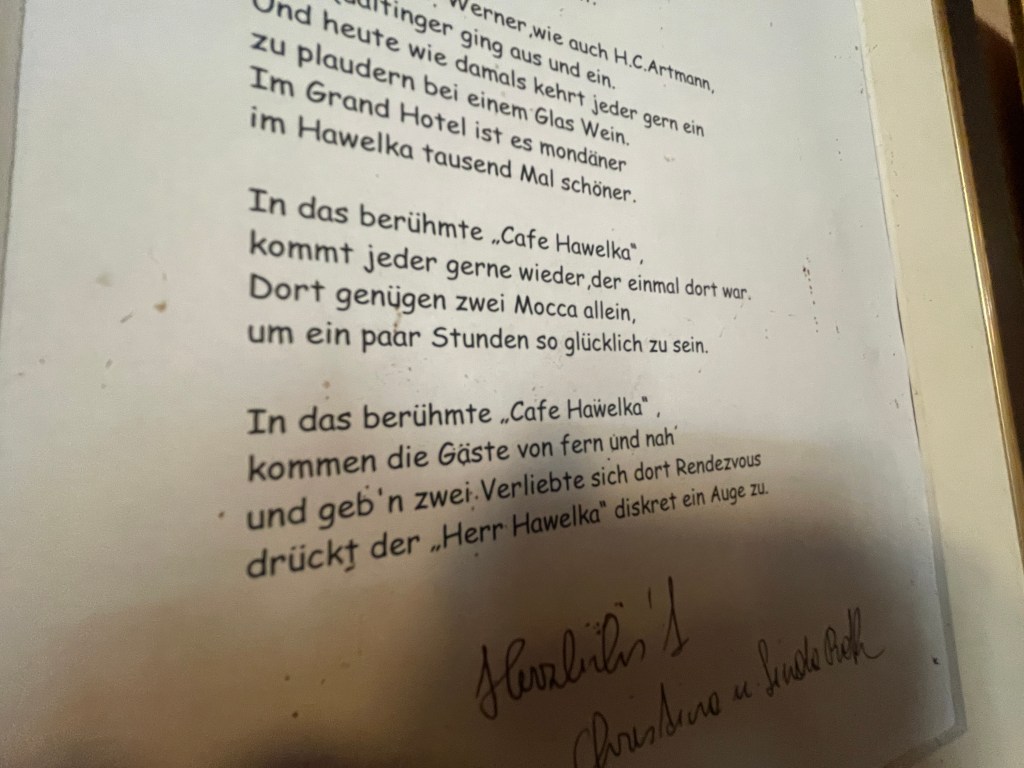 Werner,wie auch H.C.Artmann,
ging aus und ein.
Und heute wie damals kehrt jeder gern ein
zu plaudern bei einem Glas Wein.
Im Grand Hotel ist es mondäner
im Hawelka tausend Mal schöner.
In das berühmte „Cafe Hawelka",
kommt jeder gerne wieder,der einmal dort war.
Dort genügen zwei Mocca allein,
um ein paar Stunden so glücklich zu sein.
In das berühmte „Cafe Hawelka" ,
kommen die Gäste von fern und nah'
und geb'n zwei Verliebte sich dort Rendezvous
drückt der „Herr Hawelka" diskret ein Auge zu.
Christina u.